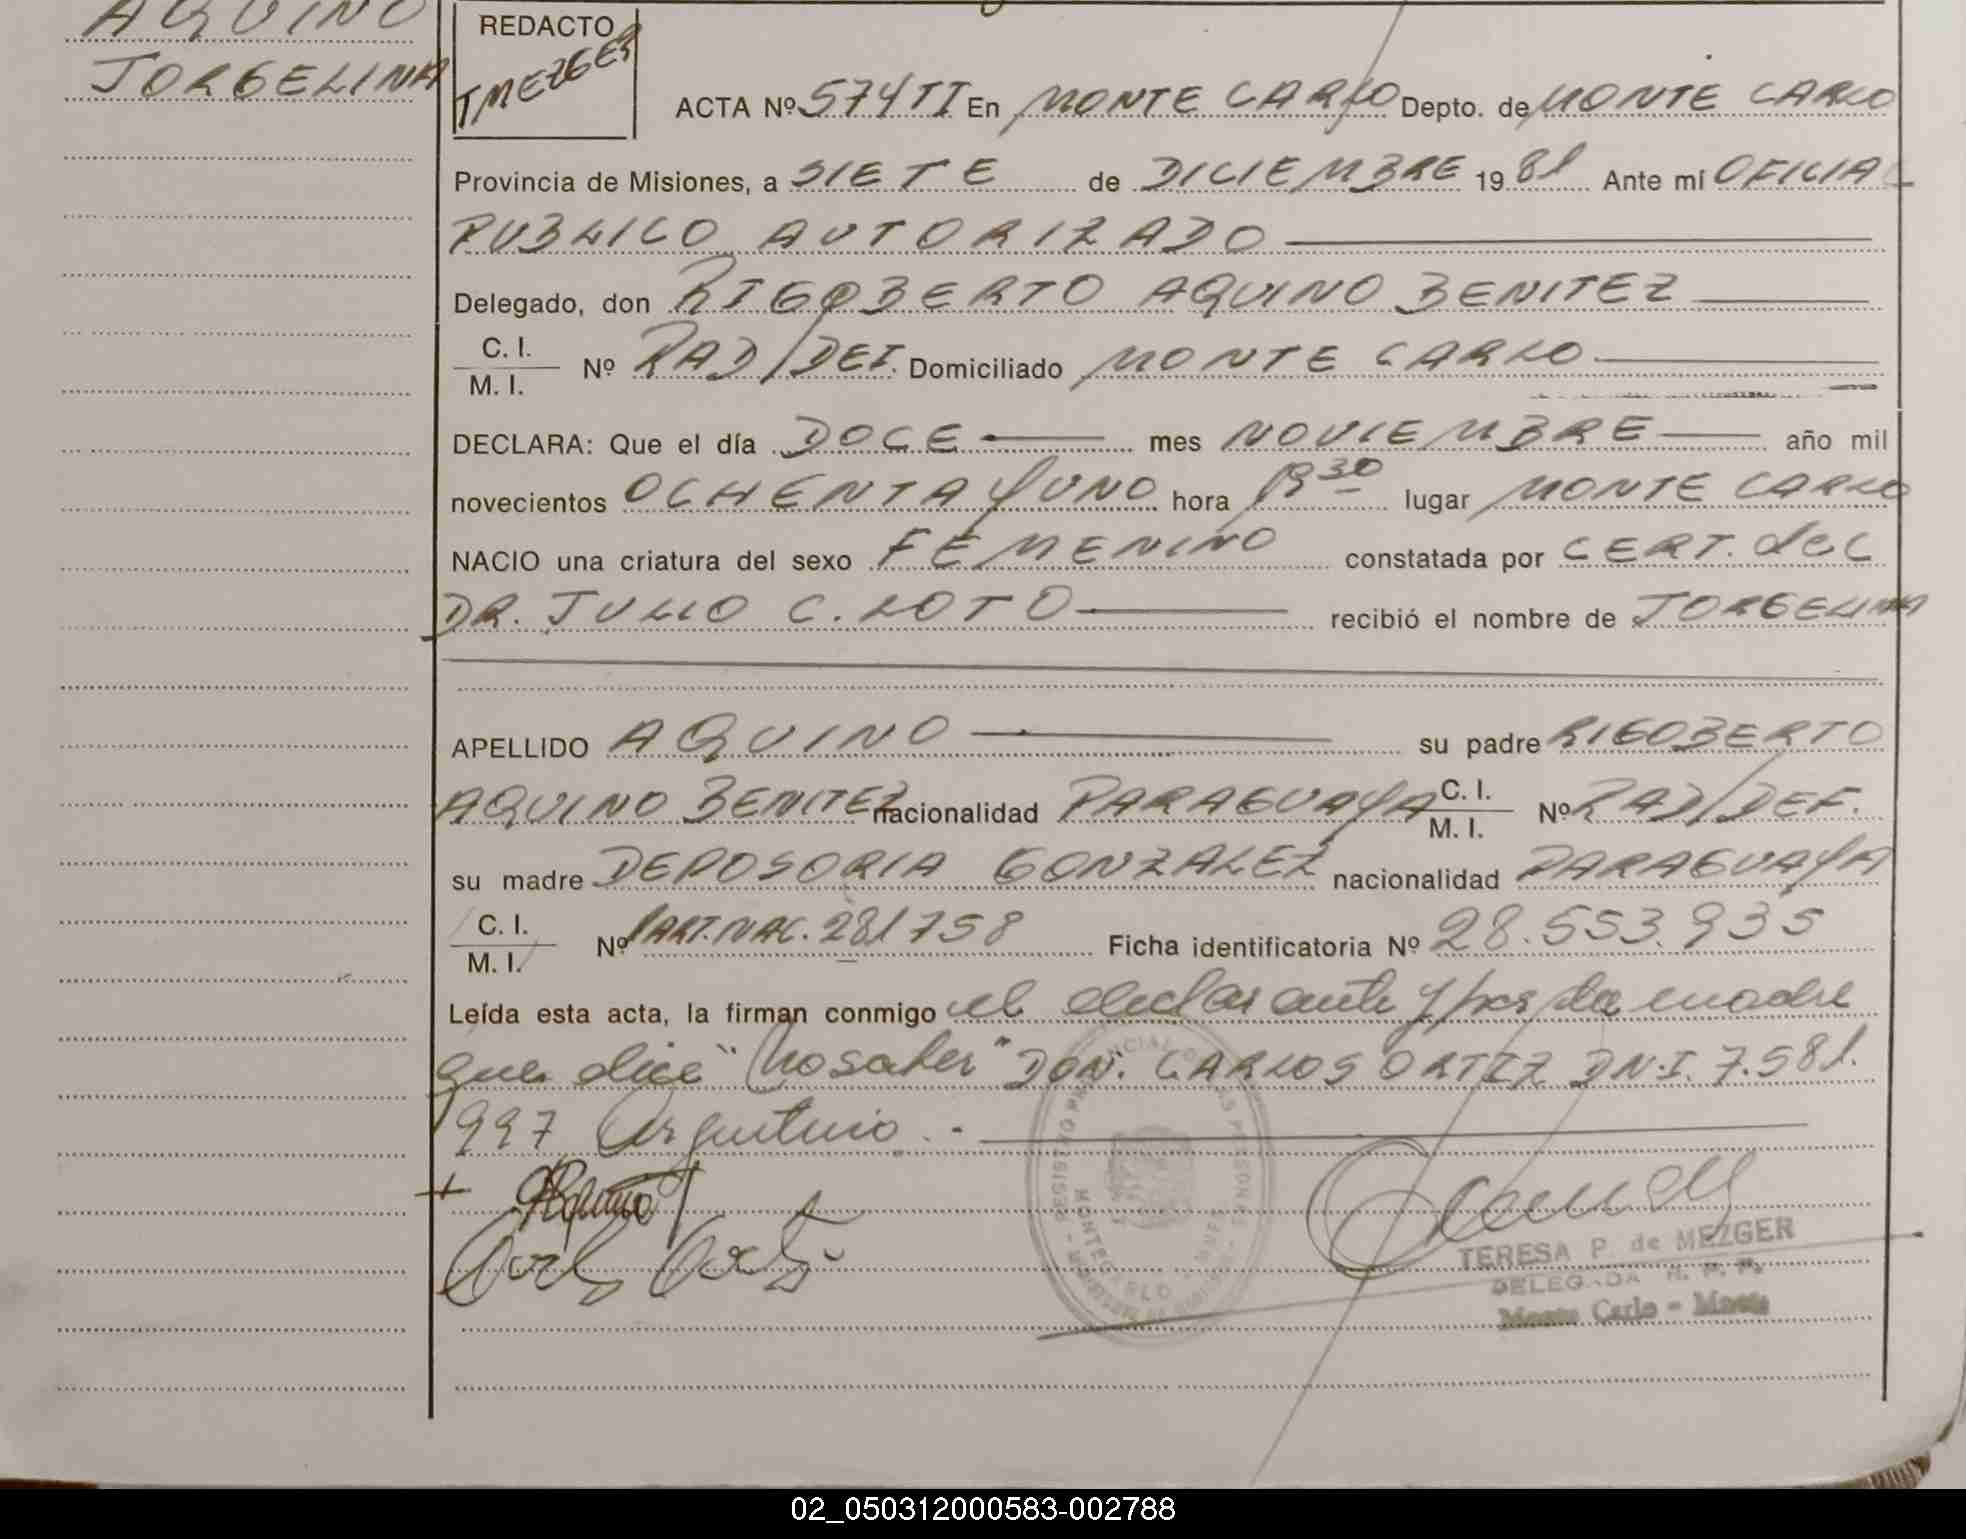 AQUINO
JORGELINA
REDACTO
TMEZGER
ACTA Nº 574 TI En MONTE CARLO Depto. de MONTE CARLO
Provincia de Misiones, a SIETE de DICIEMBRE 1981 Ante mí OFICIAL
PUBLICO AUTORIZADO
Delegado, don RIGOBERTO AQUINO BENITEZ
C. I.
M. I. Nº RAD/DEF. Domiciliado MONTE CARLO
DECLARA: Que el día DOCE mes NOVIEMBRE año mil
novecientos OCHENTA Y UNO hora 19 30 lugar MONTE CARLO
NACIO una criatura del sexo FEMENINO constatada por CERT. del
DR. JULIO C. LOTO recibió el nombre de JORGELINA
APELLIDO AQUINO su padre RIGOBERTO
AQUINO BENITEZ nacionalidad PARAGUAYA C. I. M. I. Nº RAD/DEF.
su madre DEPOSORIA GONZALEZ nacionalidad PARAGUAYA
C. I.
M. I. Nº PART. NAC. 281758 Ficha identificatoria Nº 28.553.935
Leída esta acta, la firman conmigo el declarante y por la madre
que dice "No saber" DON: CARLOS ORTIZ DN.I. 7.581.
997 Argentino.-
Aquino
Carlos Ortiz
REGISTRO PROVINCIAL DE LAS PERSONAS
MONTECARLO - MNES
TERESA P. de MEZGER
DELEGADA R. P. P.
Monte Carlo - Mnes
02_050312000583-002788